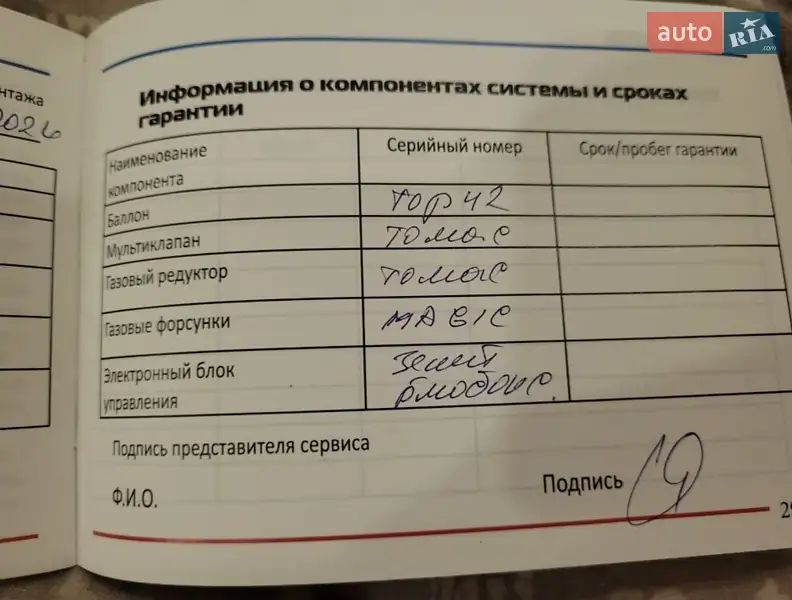 auto RIA
.com
нтажа
2026
Информация о компонентах системы и сроках
гарантии
Наименование
компонента
Серийный номер
Срок/пробег гарантии
Баллон
тор 42
Мультиклапан
томас
Газовый редуктор
томас
Газовые форсунки
MAGIC
Электронный блок
управления
зенит
Подпись представителя сервиса
Ф.И.О.
Подпись